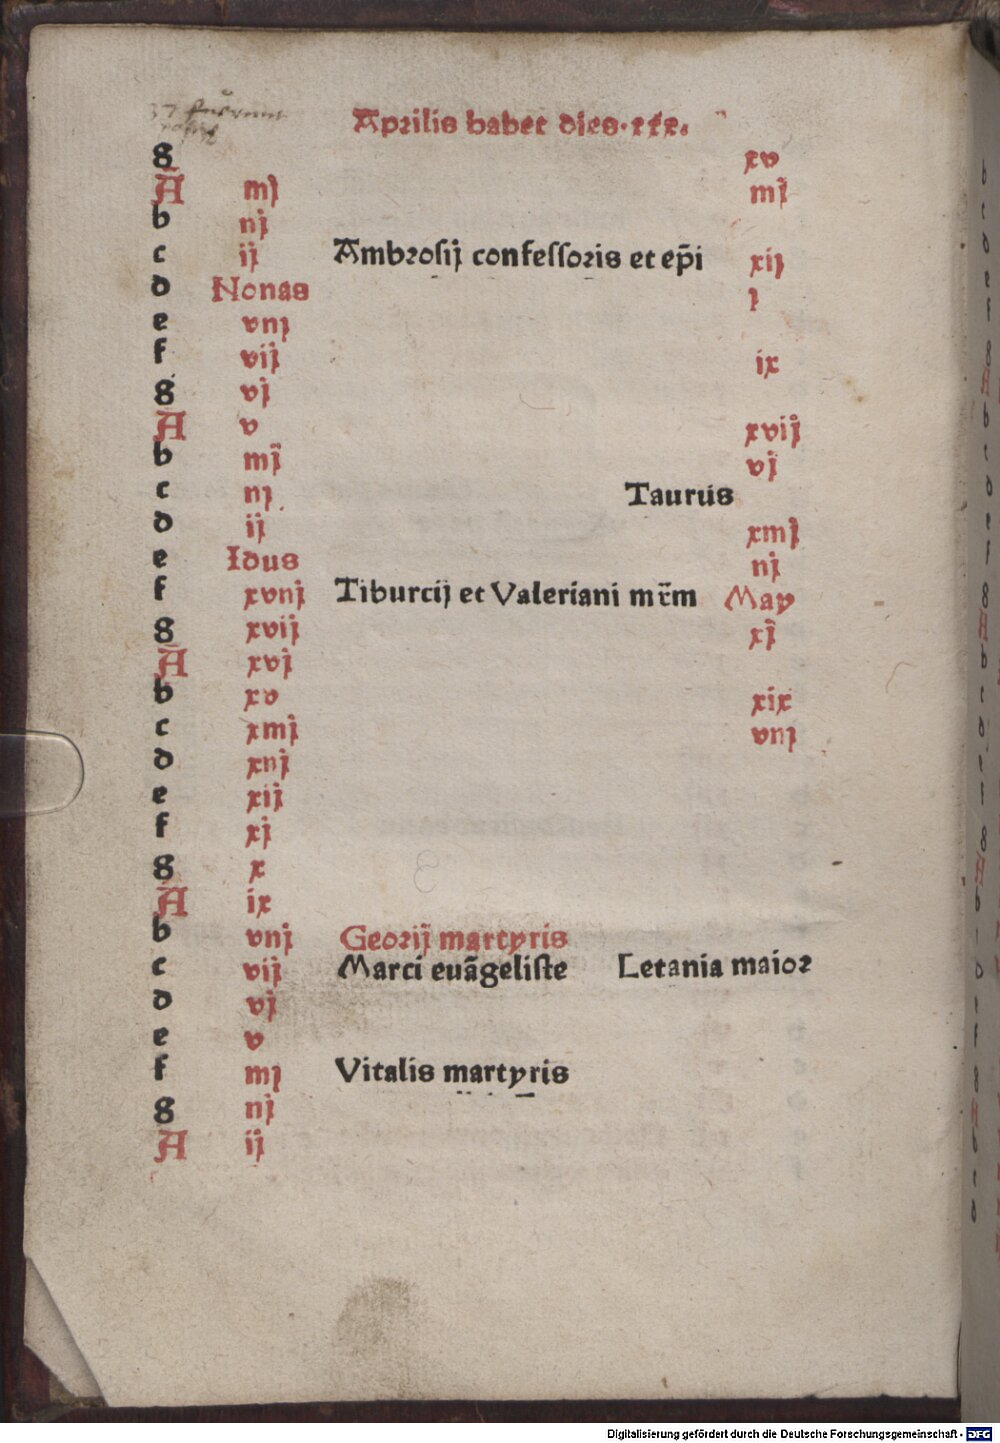 Aprilis habet dies.xxx.
g xv
A iiij iiij
b iij
c ij Ambrosij confessoris et ep̄i xij
d Nonas j
e viij
f vij ix
g vj
A v xvij
b iiij vj
c iij Taurus
d ij xiiij
e Idus iij
f xviij Tiburcij et Valeriani mr̄m May
g xvij xj
A xvj
b xv xix
c xiiij viij
d xiij
e xij
f xj
g x
A ix
b viij Georij martyris
c vij Marci euāgeliste Letania maior
d vj
e v
f iiij Vitalis martyris
g iij
A ij
Digitalisierung gefördert durch die Deutsche Forschungsgemeinschaft - DFG